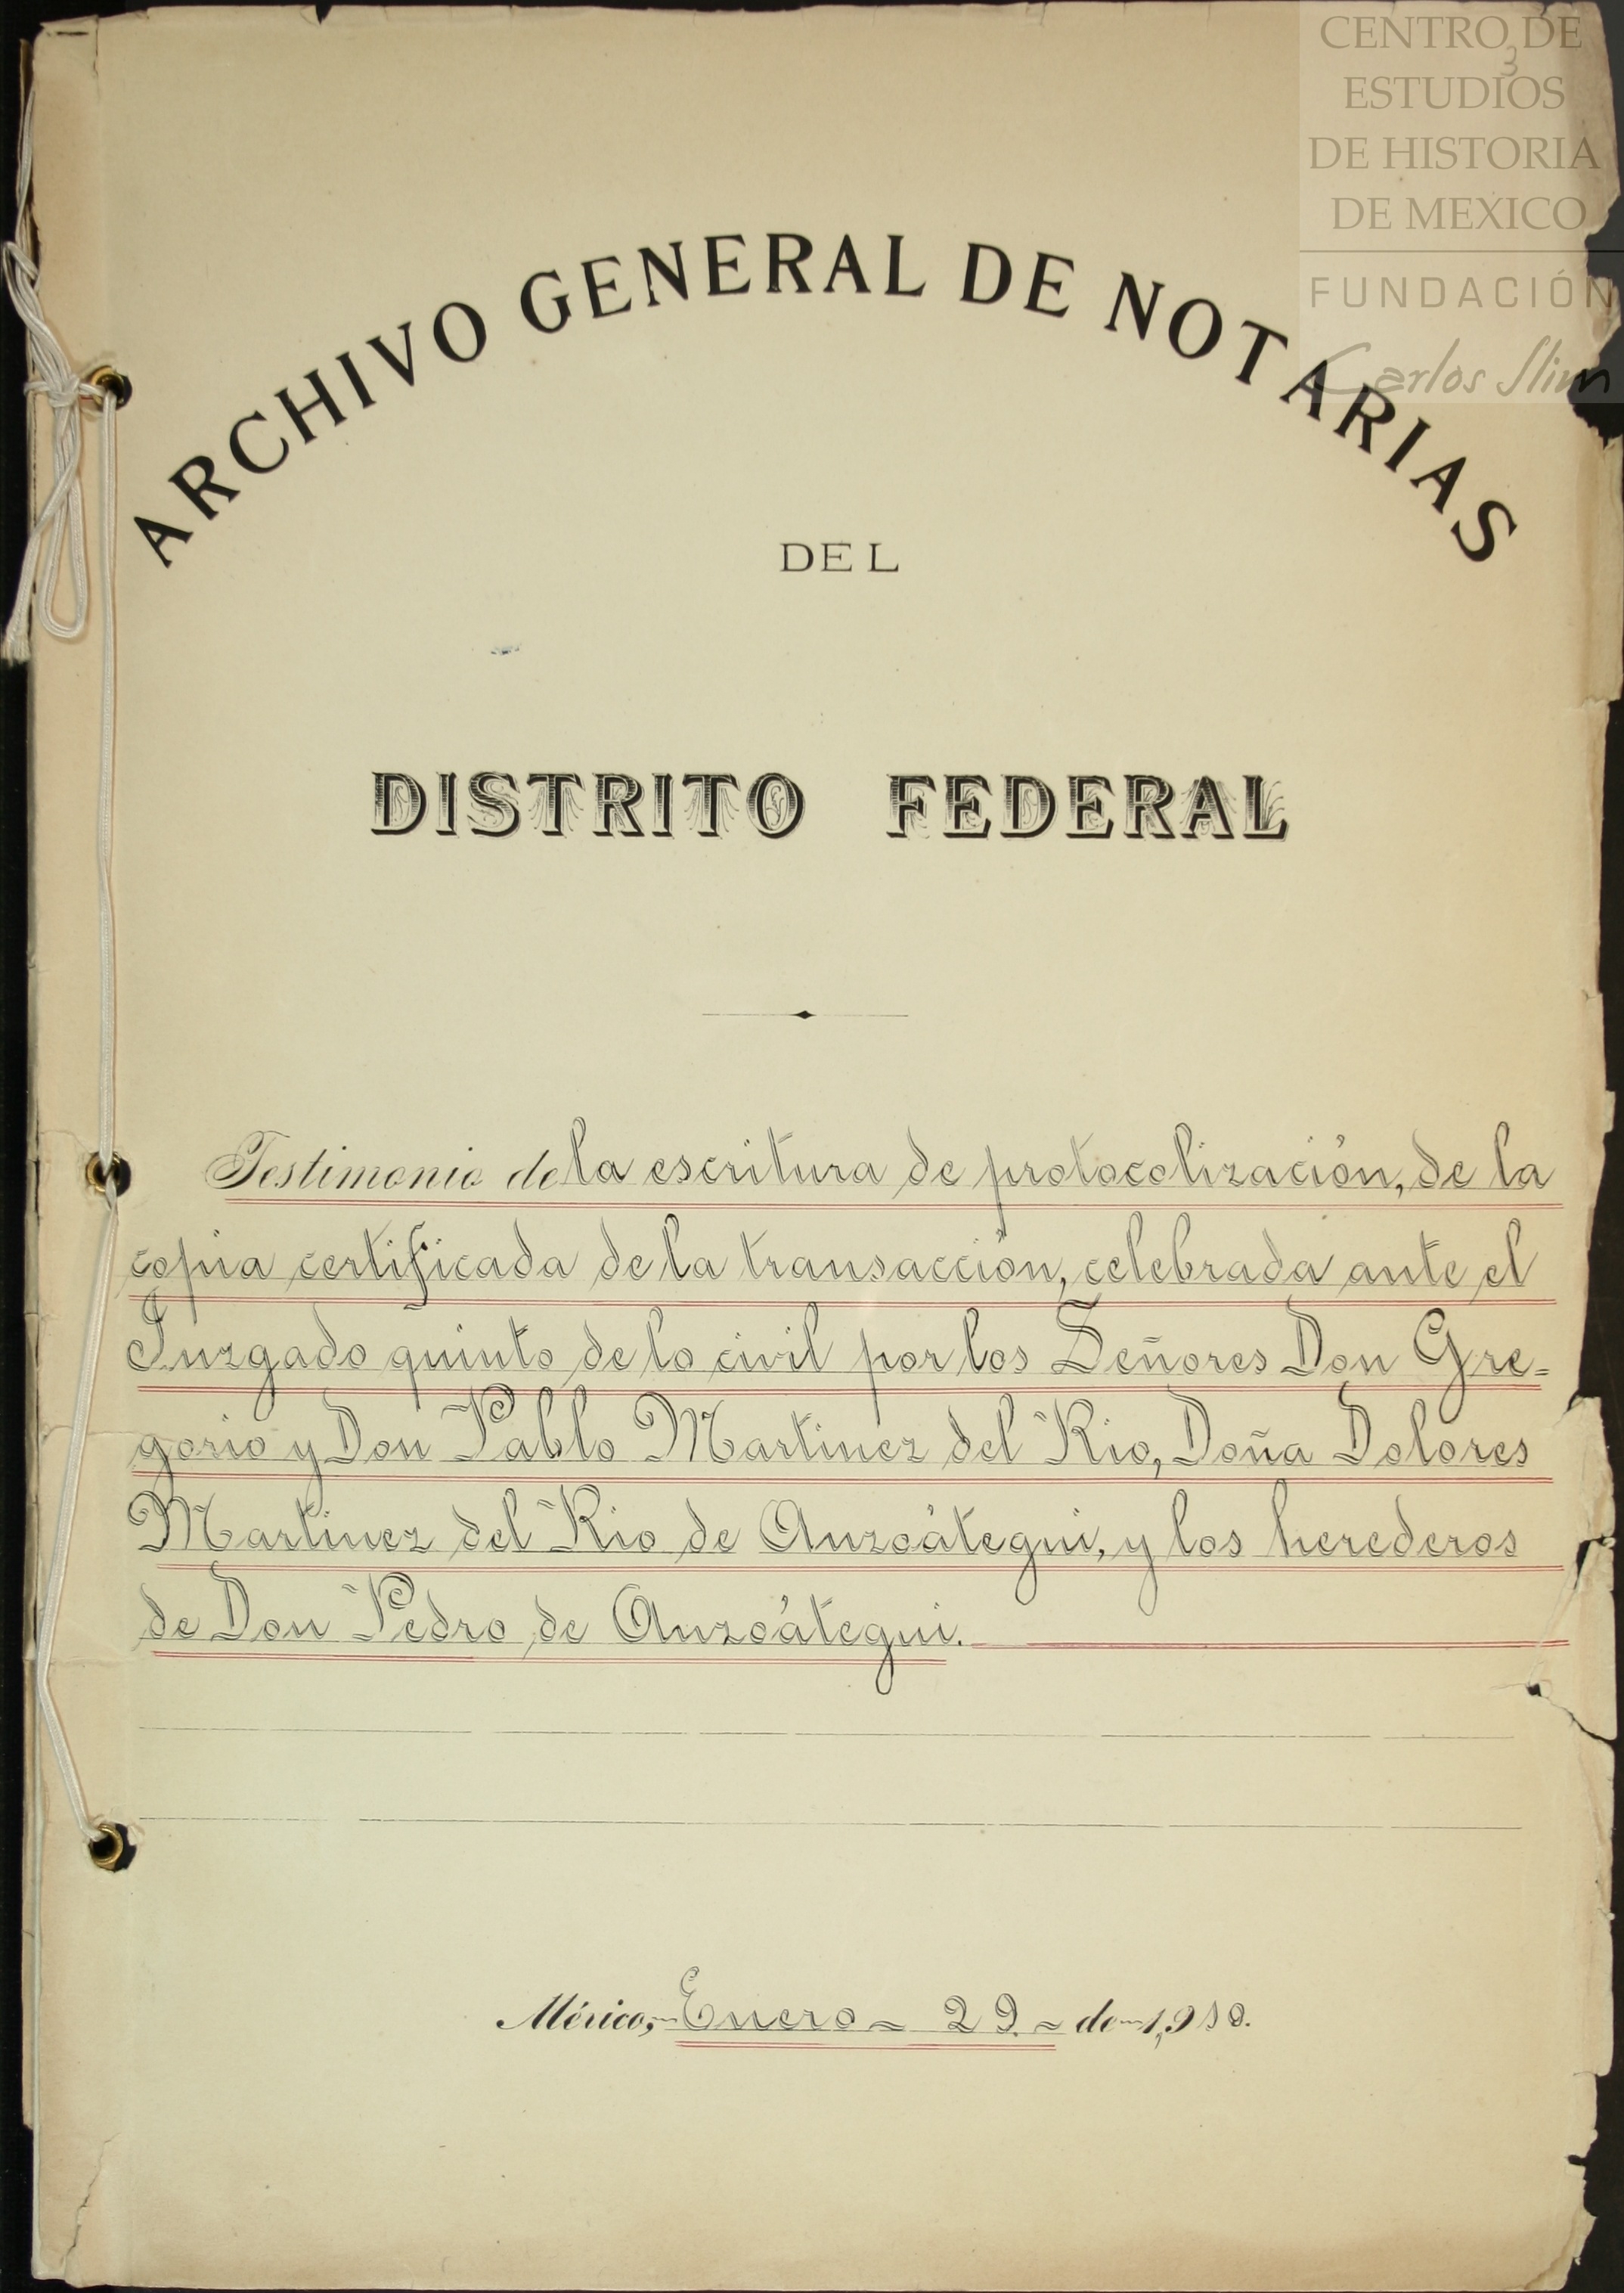 CENTRO DE
3
ESTUDIOS
DE HISTORIA
DE MEXICO
FUNDACIÓN
Carlos Slim
ARCHIVO GENERAL DE NOTARIAS
DEL
DISTRITO FEDERAL
Testimonio de la escritura de protocolización, de la
copia certificada de la transacción, celebrada ante el
Juzgado quinto de lo civil por los Señores Don Gre=
gorio y Don Pablo Martinez del Rio, Doña Dolores
Martinez del Rio de Anzoátegui, y los herederos
de Don Pedro de Anzoátegui.
México, Enero 29. de